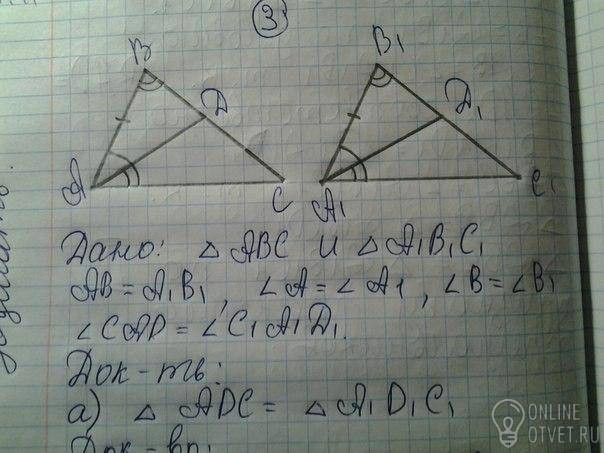 3
B
B1
D
D1
A
C
A1
C1
Дано: △ ABC и △ A1B1C1
AB = A1B1, ∠A = ∠A1, ∠B = ∠B1
∠CAD = ∠C1A1D1.
Док-ть:
а) △ ADC = △ A1D1C1
ONLINE
OTVET.RU